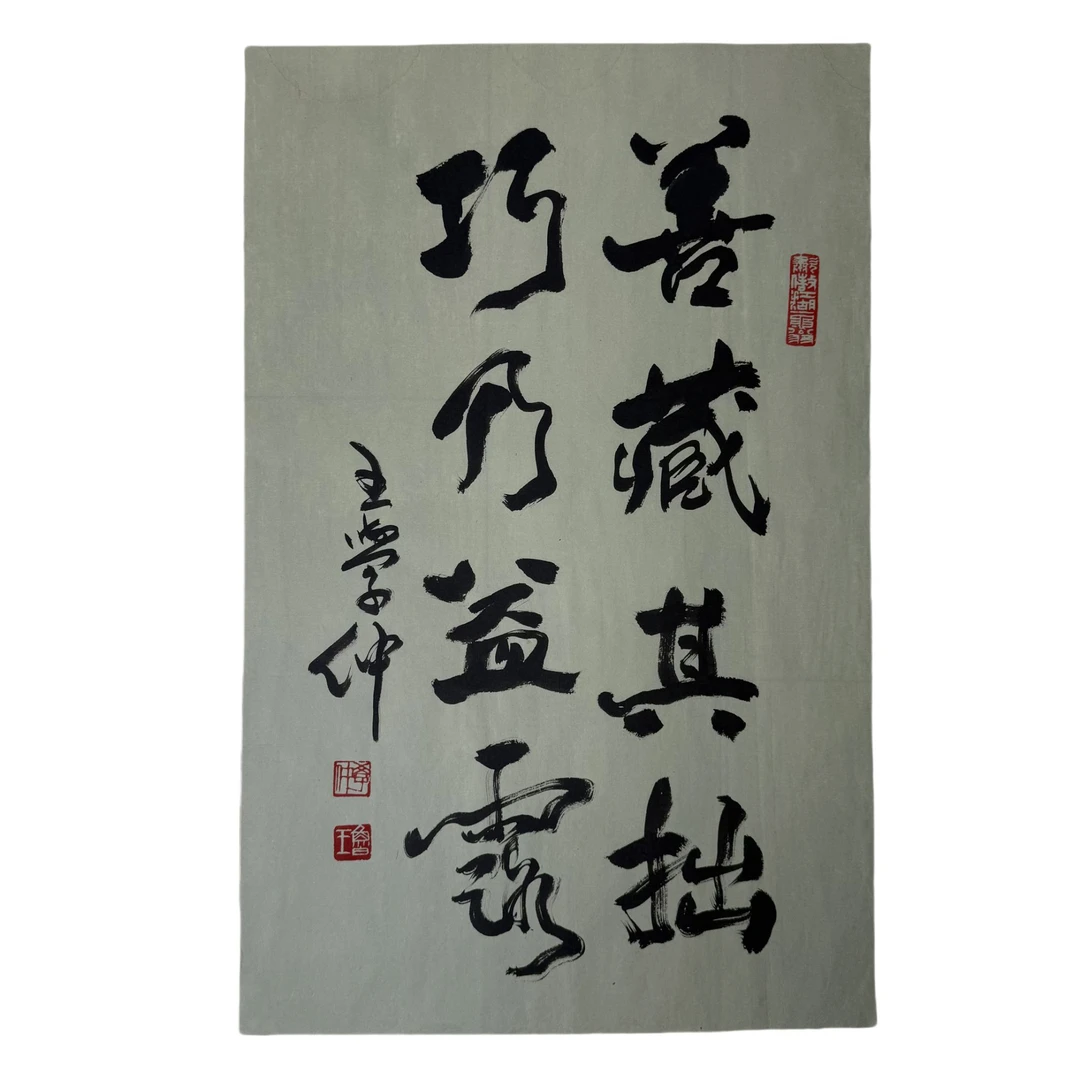 善藏其拙
巧乃益露
王學仲
學仲
魯王